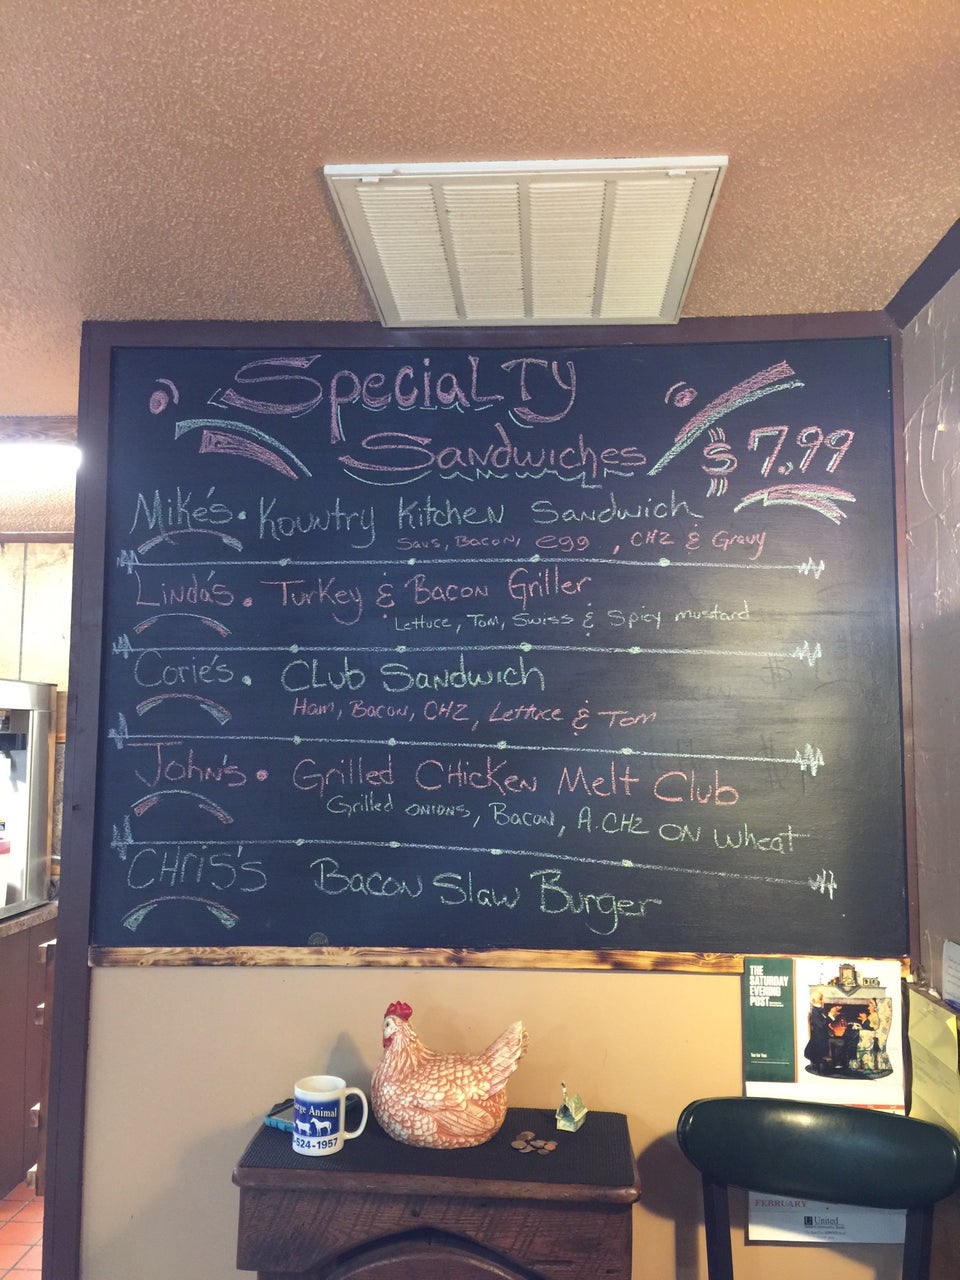 Specialty
Sandwiches
$7.99
Mike's. Kountry Kitchen Sandwich
Saus, Bacon, egg, CHZ & Gravy
Linda's. Turkey & Bacon Griller
Lettuce, Tom, Swiss & Spicy mustard
Corie's. Club Sandwich
Ham, Bacon, CHZ, Lettuce & Tom
John's. Grilled Chicken Melt Club
Grilled onions, Bacon, A.CHZ on wheat
Chris's Bacon Slaw Burger
THE
SATURDAY
EVENING
POST
Large Animal
-524-1957
FEBRUARY
United